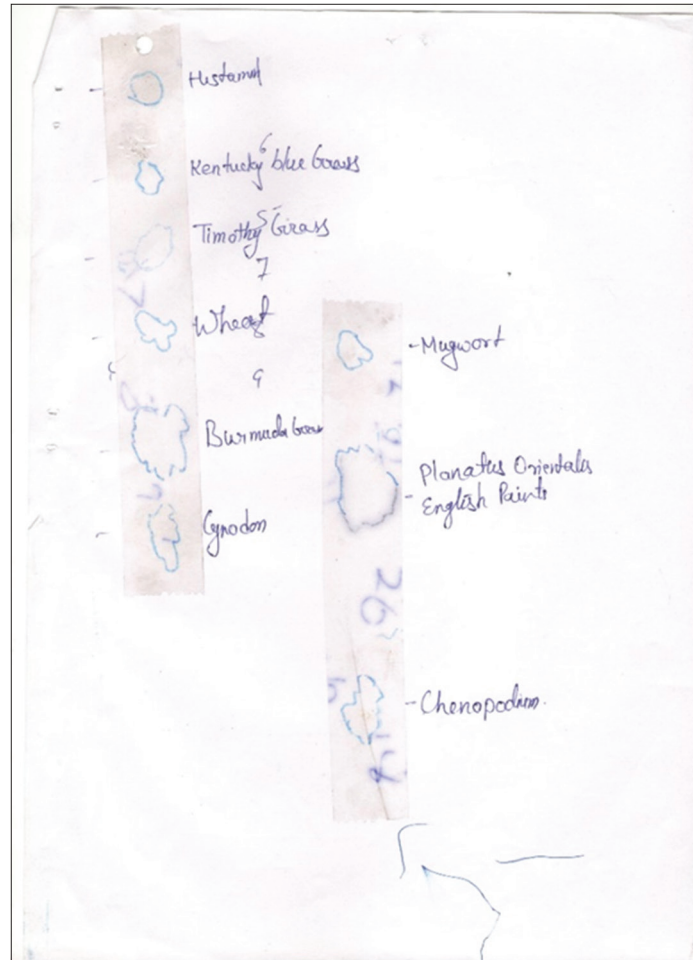 Histamin
6
Kentucky blue Grass
5
Timothy Grass
7
Wheat
9
Burmuda Grass
Cynodon
-Mugwort
Planatus Orientalis
- English Paints
26
-Chenopodium.
14